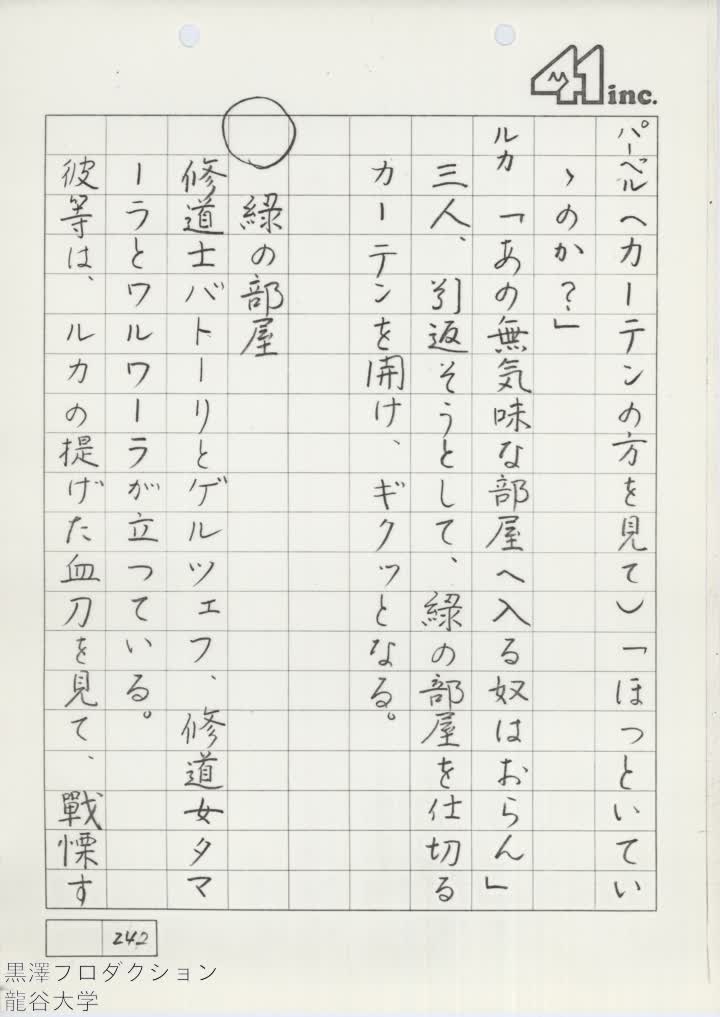 41 inc.
パーベル(カーテンの方を見て)「ほっといてい
ゝのか?」
ルカ「あの無気味な部屋へ入る奴はおらん」
三人、引返そうとして、緑の部屋を仕切る
カーテンを開け、ギクッとなる。
緑の部屋
修道士バトーリとゲルツェフ、修道女タマ
ーラとワルワーラが立っている。
彼等は、ルカの提げた血刀を見て、戰慄す
242
黒澤プロダクション
龍谷大学